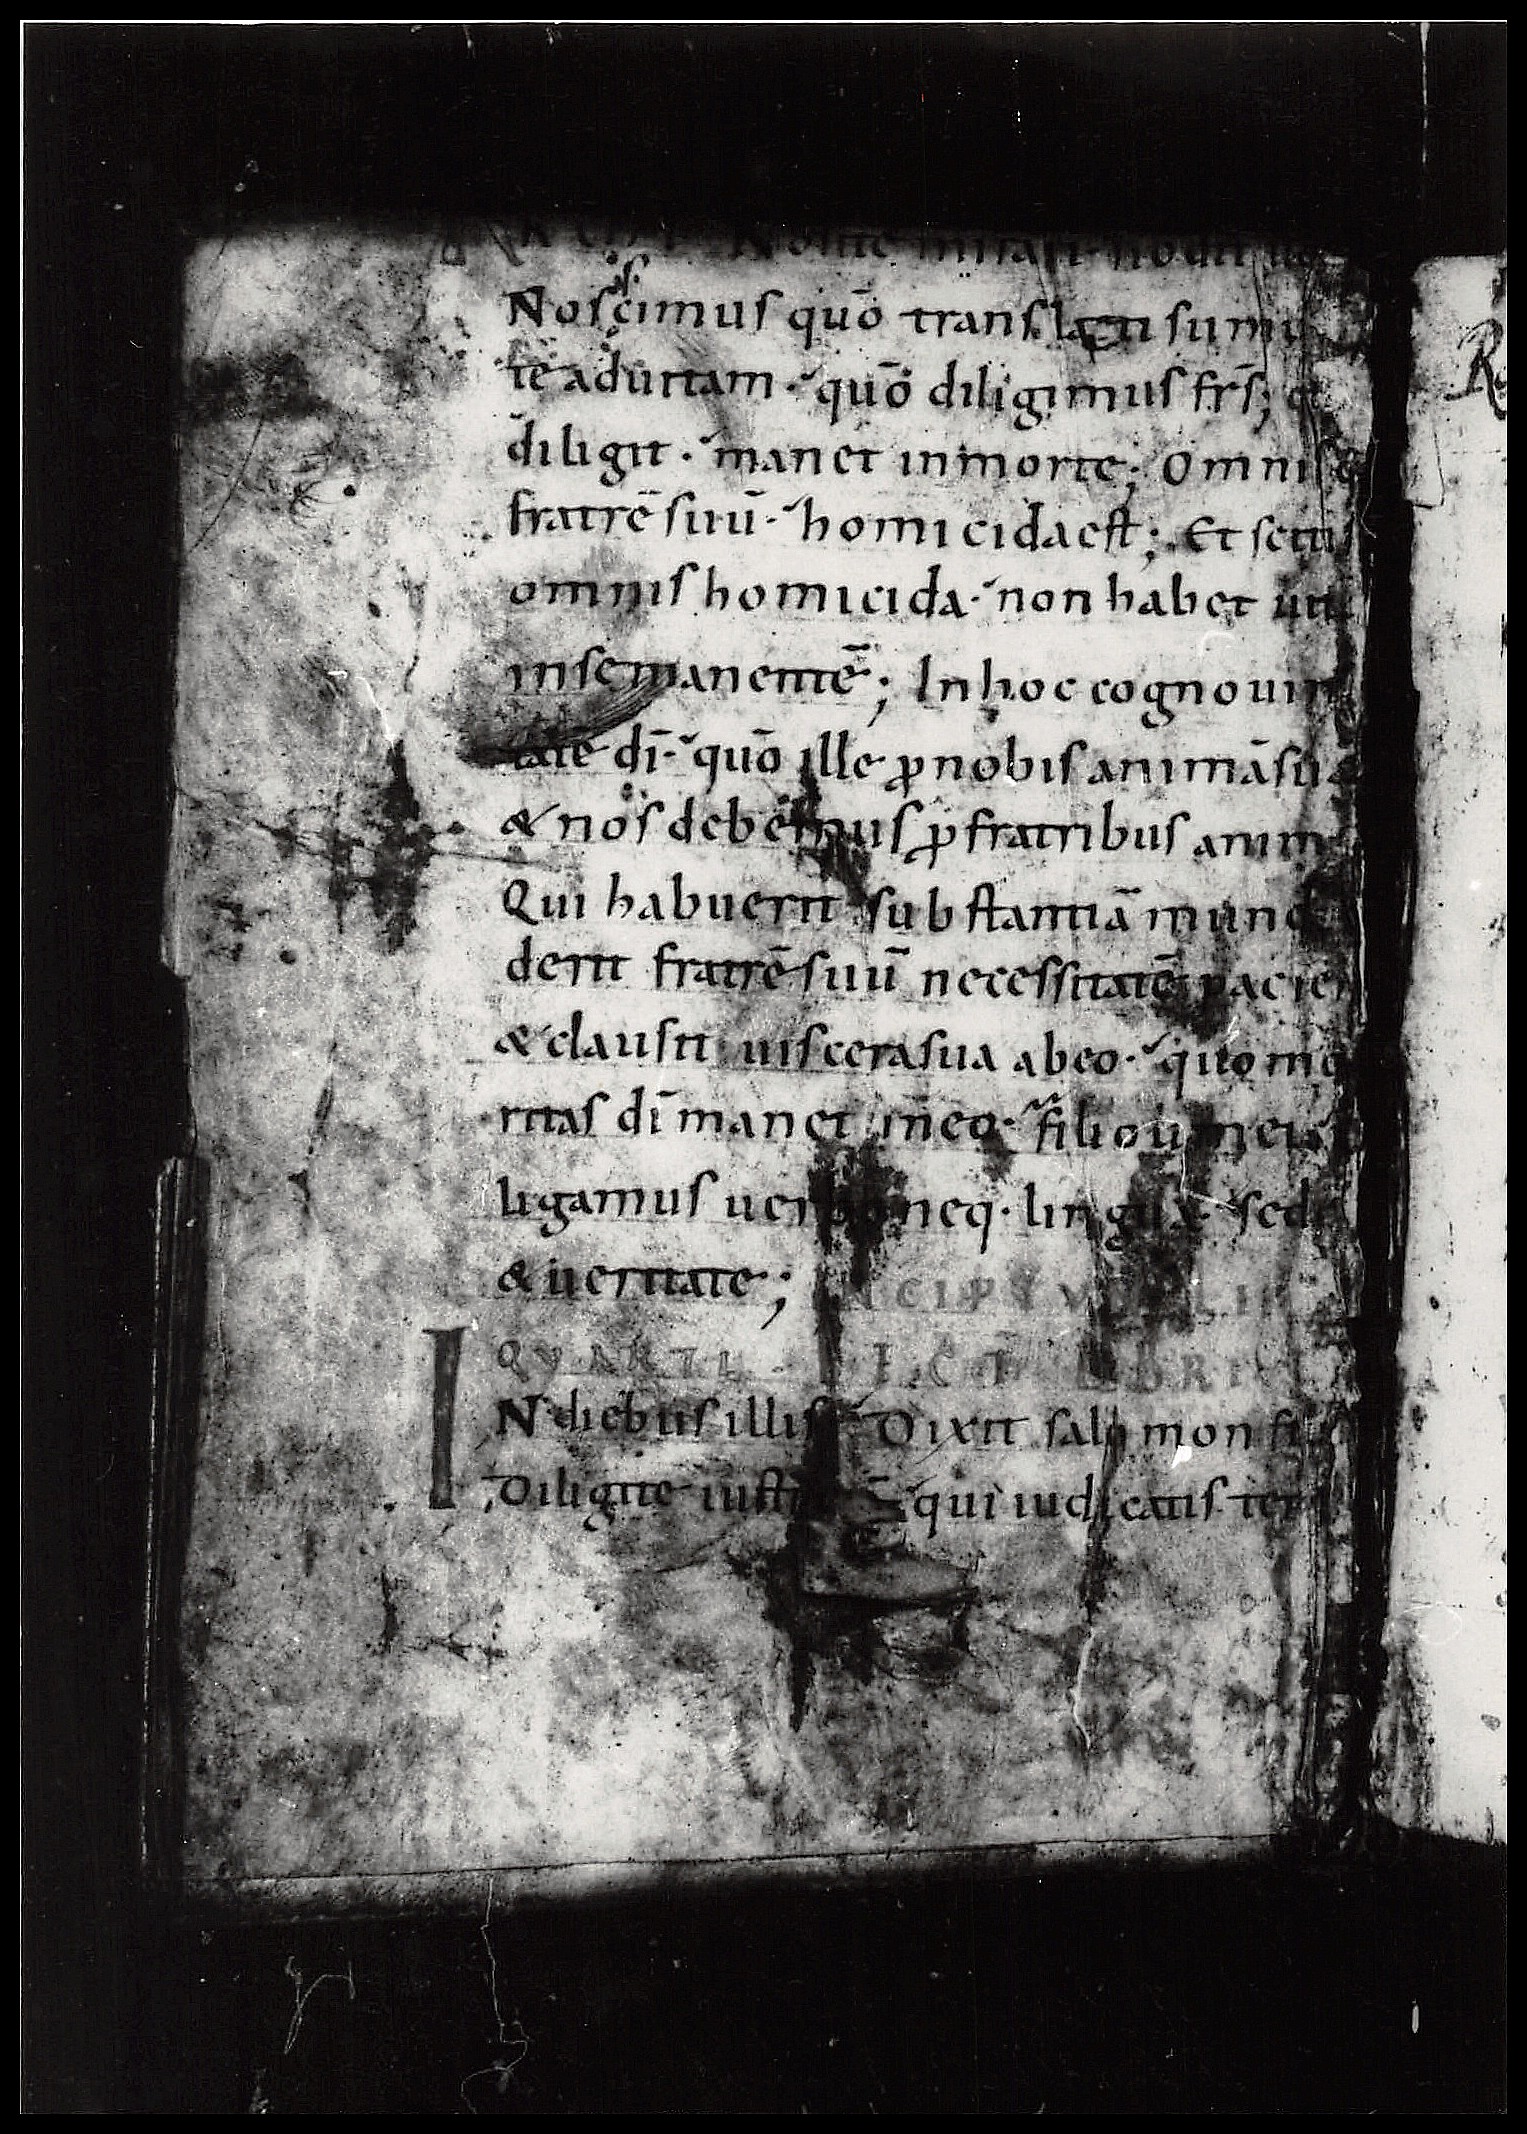 Nolite mirari si odit
Noscimus quō translati sumu
te aduitam · quō diligimus frs̄; q
diligit · manet inmorte; Omnis
fratrē suū · homicida est; Et scitis
omnis homicida · non habet uitā
insemanentē; Inhoc cognouim
tate dī · quō ille ꝓnobis animā suā
& nos debemus ꝓfratribus anim
Qui habuerit substantiā mund
derit fratrē suū necessitatē pacien
& clausit uiscera sua abeo · quomo
ritas dī manet ineo · filioli mei
ligamus uerbo neq· lingua · sed
& ueritate; INCIPIT LI
QVARTA LIBRI
IN diebus illis Dixit salomon fi
Diligite iusti qui iudicatis ter
R